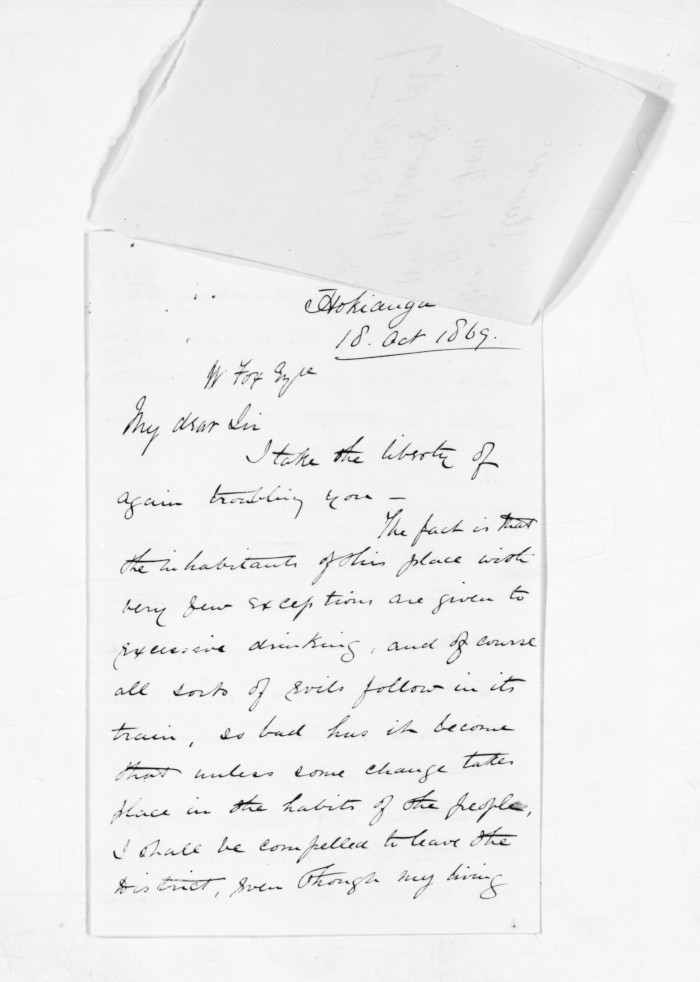 Hokianga
18. Oct 1869.
W Fox Esqre
My dear Sir
I take the liberty of
again troubling you —
The fact is that
the inhabitants of this place with
very few exceptions are given to
excessive drinking, and of course
all sorts of evils follow in its
train, so bad has it become
that unless some change takes
place in the habits of the people,
I shall be compelled to leave the
District, even though my living